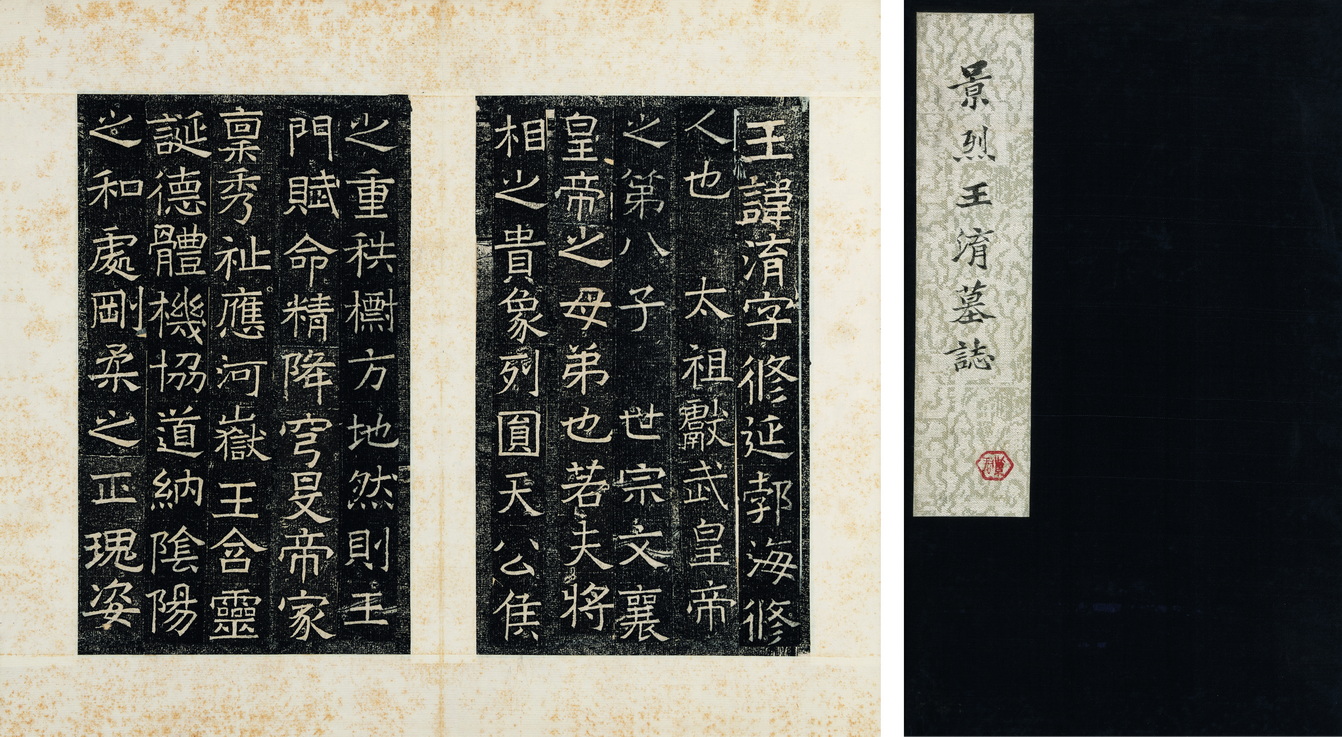 景烈王淯墓誌
王諱淯字修延郣海修
人也　太祖獻武皇帝
之第八子　世宗文襄
皇帝之母弟也若夫將
相之貴象列圓天公侯
之重秩標方地然則王
門賦命精降穹旻帝家
稟秀祉應河嶽王含靈
誕德體機協道納陰陽
之和處剛柔之正瑰姿